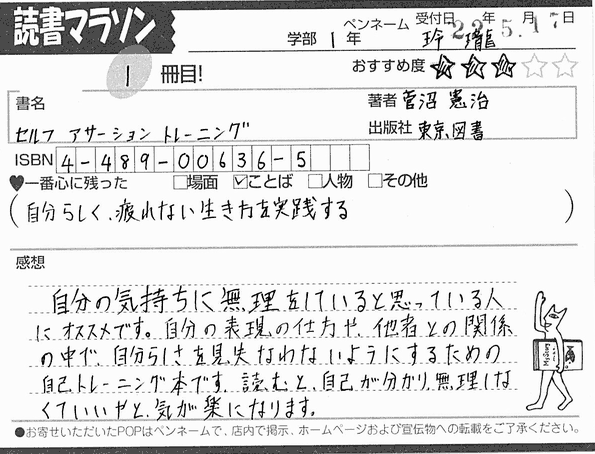 読書マラソン
学部 1年 ペンネーム 玲瓏 受付日 22年5月17日
1 冊目! おすすめ度 ★★★☆☆
書名 著者 菅沼 憲治
セルフ アサーション トレーニング 出版社 東京図書
ISBN 4-489-00636-5
♥一番心に残った □場面 ☑ことば □人物 □その他
(自分らしく、疲れない生き方を実践する)
感想
自分の気持ちに無理をしていると思っている人
にオススメです。自分の表現の仕方や、他者との関係
の中で、自分らしさを見失なわないようにするための
自己トレーニング本です。読むと、自己が分かり、無理しな
くていいやと、気が楽になります。
●お寄せいただいたPOPはペンネームで、店内で掲示、ホームページおよび宣伝物への転載をご了承ください。